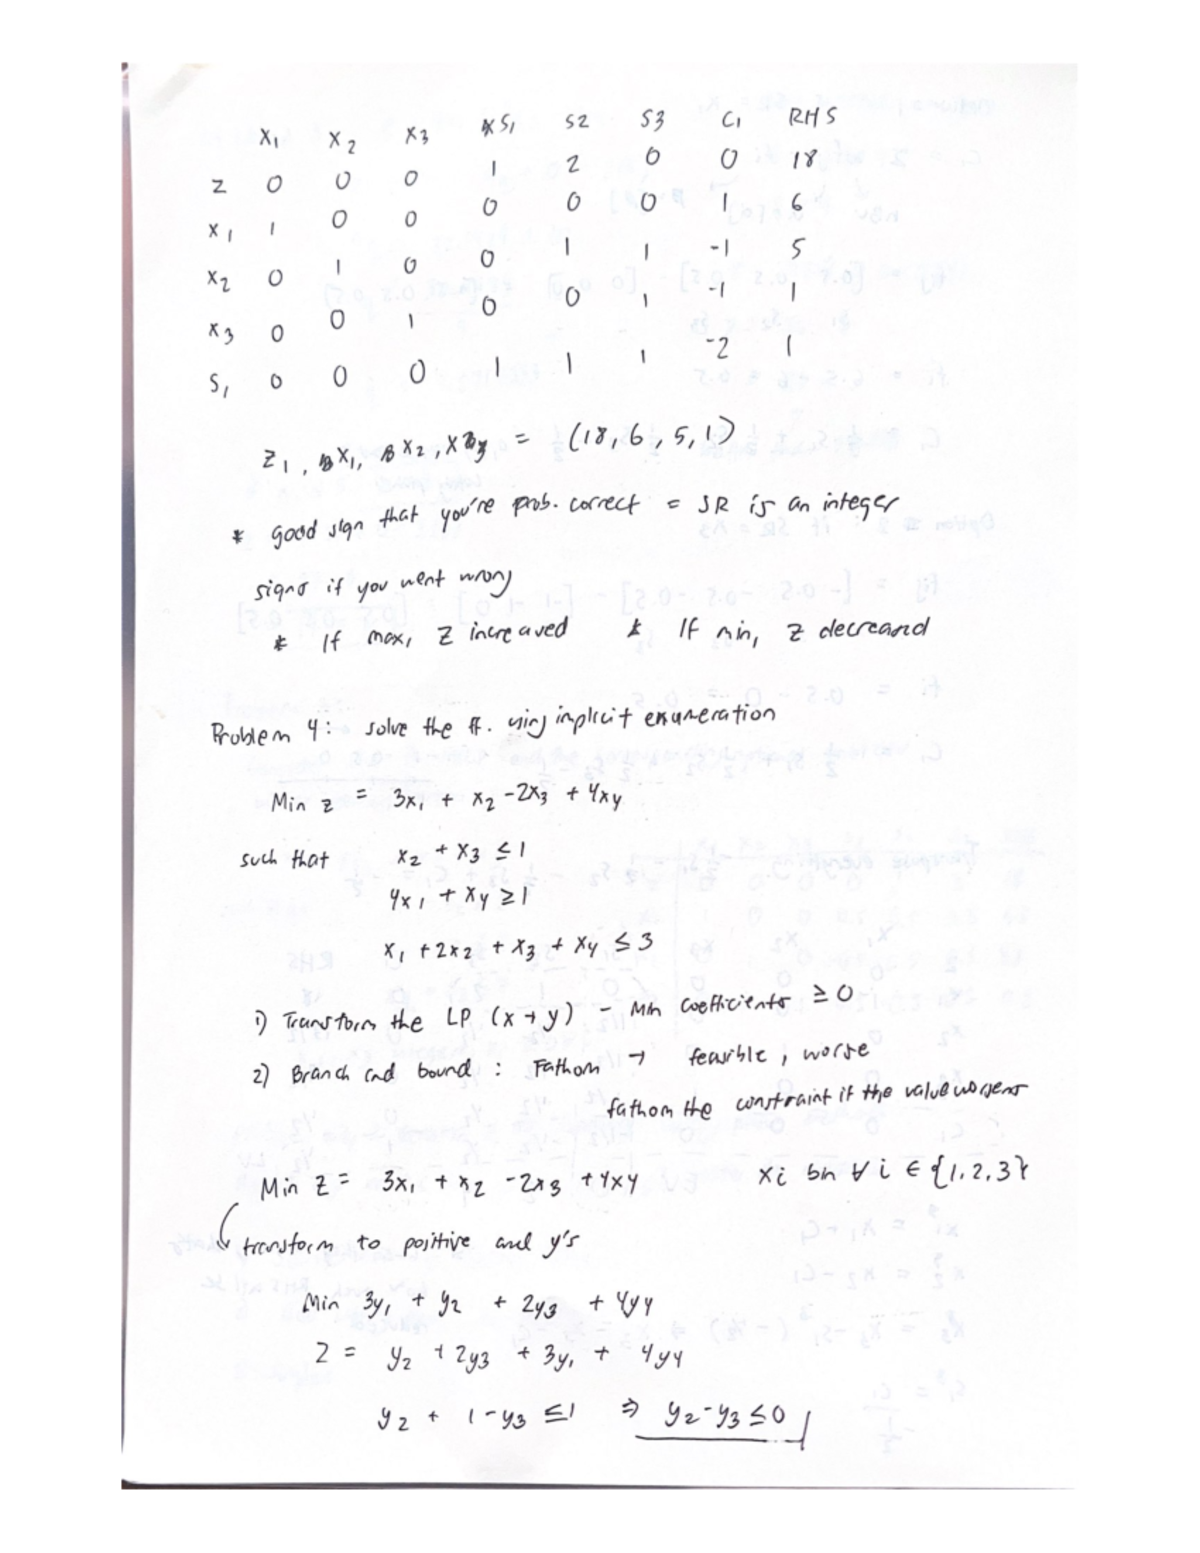 X1 X2 X3 S1 S2 S3 C1 RHS
Z 0 0 0 1 2 0 0 18
X1 1 0 0 0 0 0 1 6
X2 0 1 0 0 1 1 -1 5
X3 0 0 1 0 0 1 -1 1
S1 0 0 0 1 1 1 -2 1
Z1, X1, X2, X3 = (18, 6, 5, 1)
* good sign that you're prob. correct = SR is an integer
signs if you went wrong
* If max, Z increased * If min, Z decreased
Problem 4: solve the ff. using implicit enumeration
Min z = 3x1 + x2 - 2x3 + 4x4
such that x2 + x3 ≤ 1
4x1 + x4 ≥ 1
x1 + 2x2 + x3 + x4 ≤ 3
1) Transform the LP (x → y) - Min coefficients ≥ 0
2) Branch and bound : Fathom → feasible, worse
fathom the constraint if the value worsens
Min z = 3x1 + x2 - 2x3 + 4x4 xi bn ∀ i ∈ {1,2,3}
transform to positive and y's
Min 3y1 + y2 + 2y3 + 4y4
Z = y2 + 2y3 + 3y1 + 4y4
y2 + 1 - y3 ≤ 1 ⇒ y2 - y3 ≤ 0